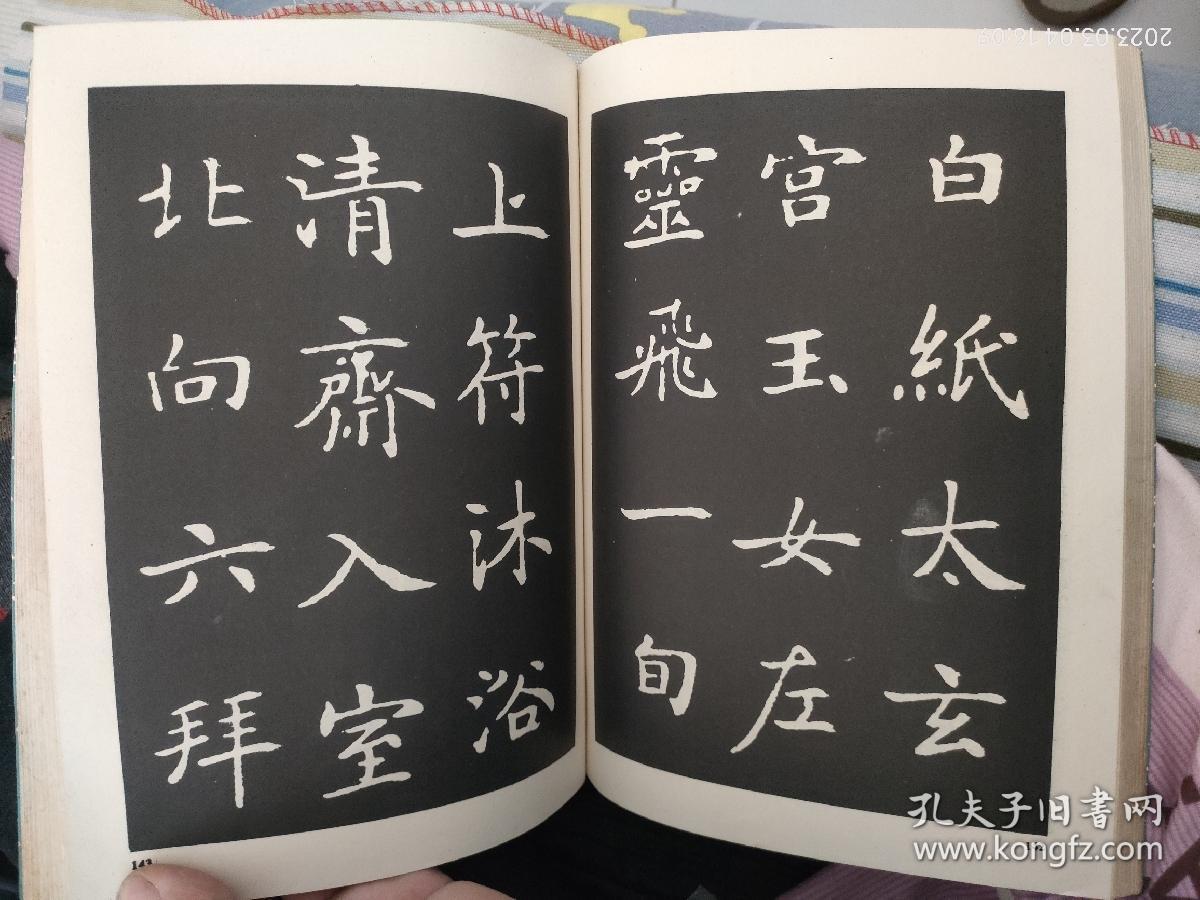 白紙太玄
宮玉女左
靈飛一旬
上符沐浴
清齋入室
北向六拜
143
2023.03.04 16:09
孔夫子旧书网
www.kongfz.com